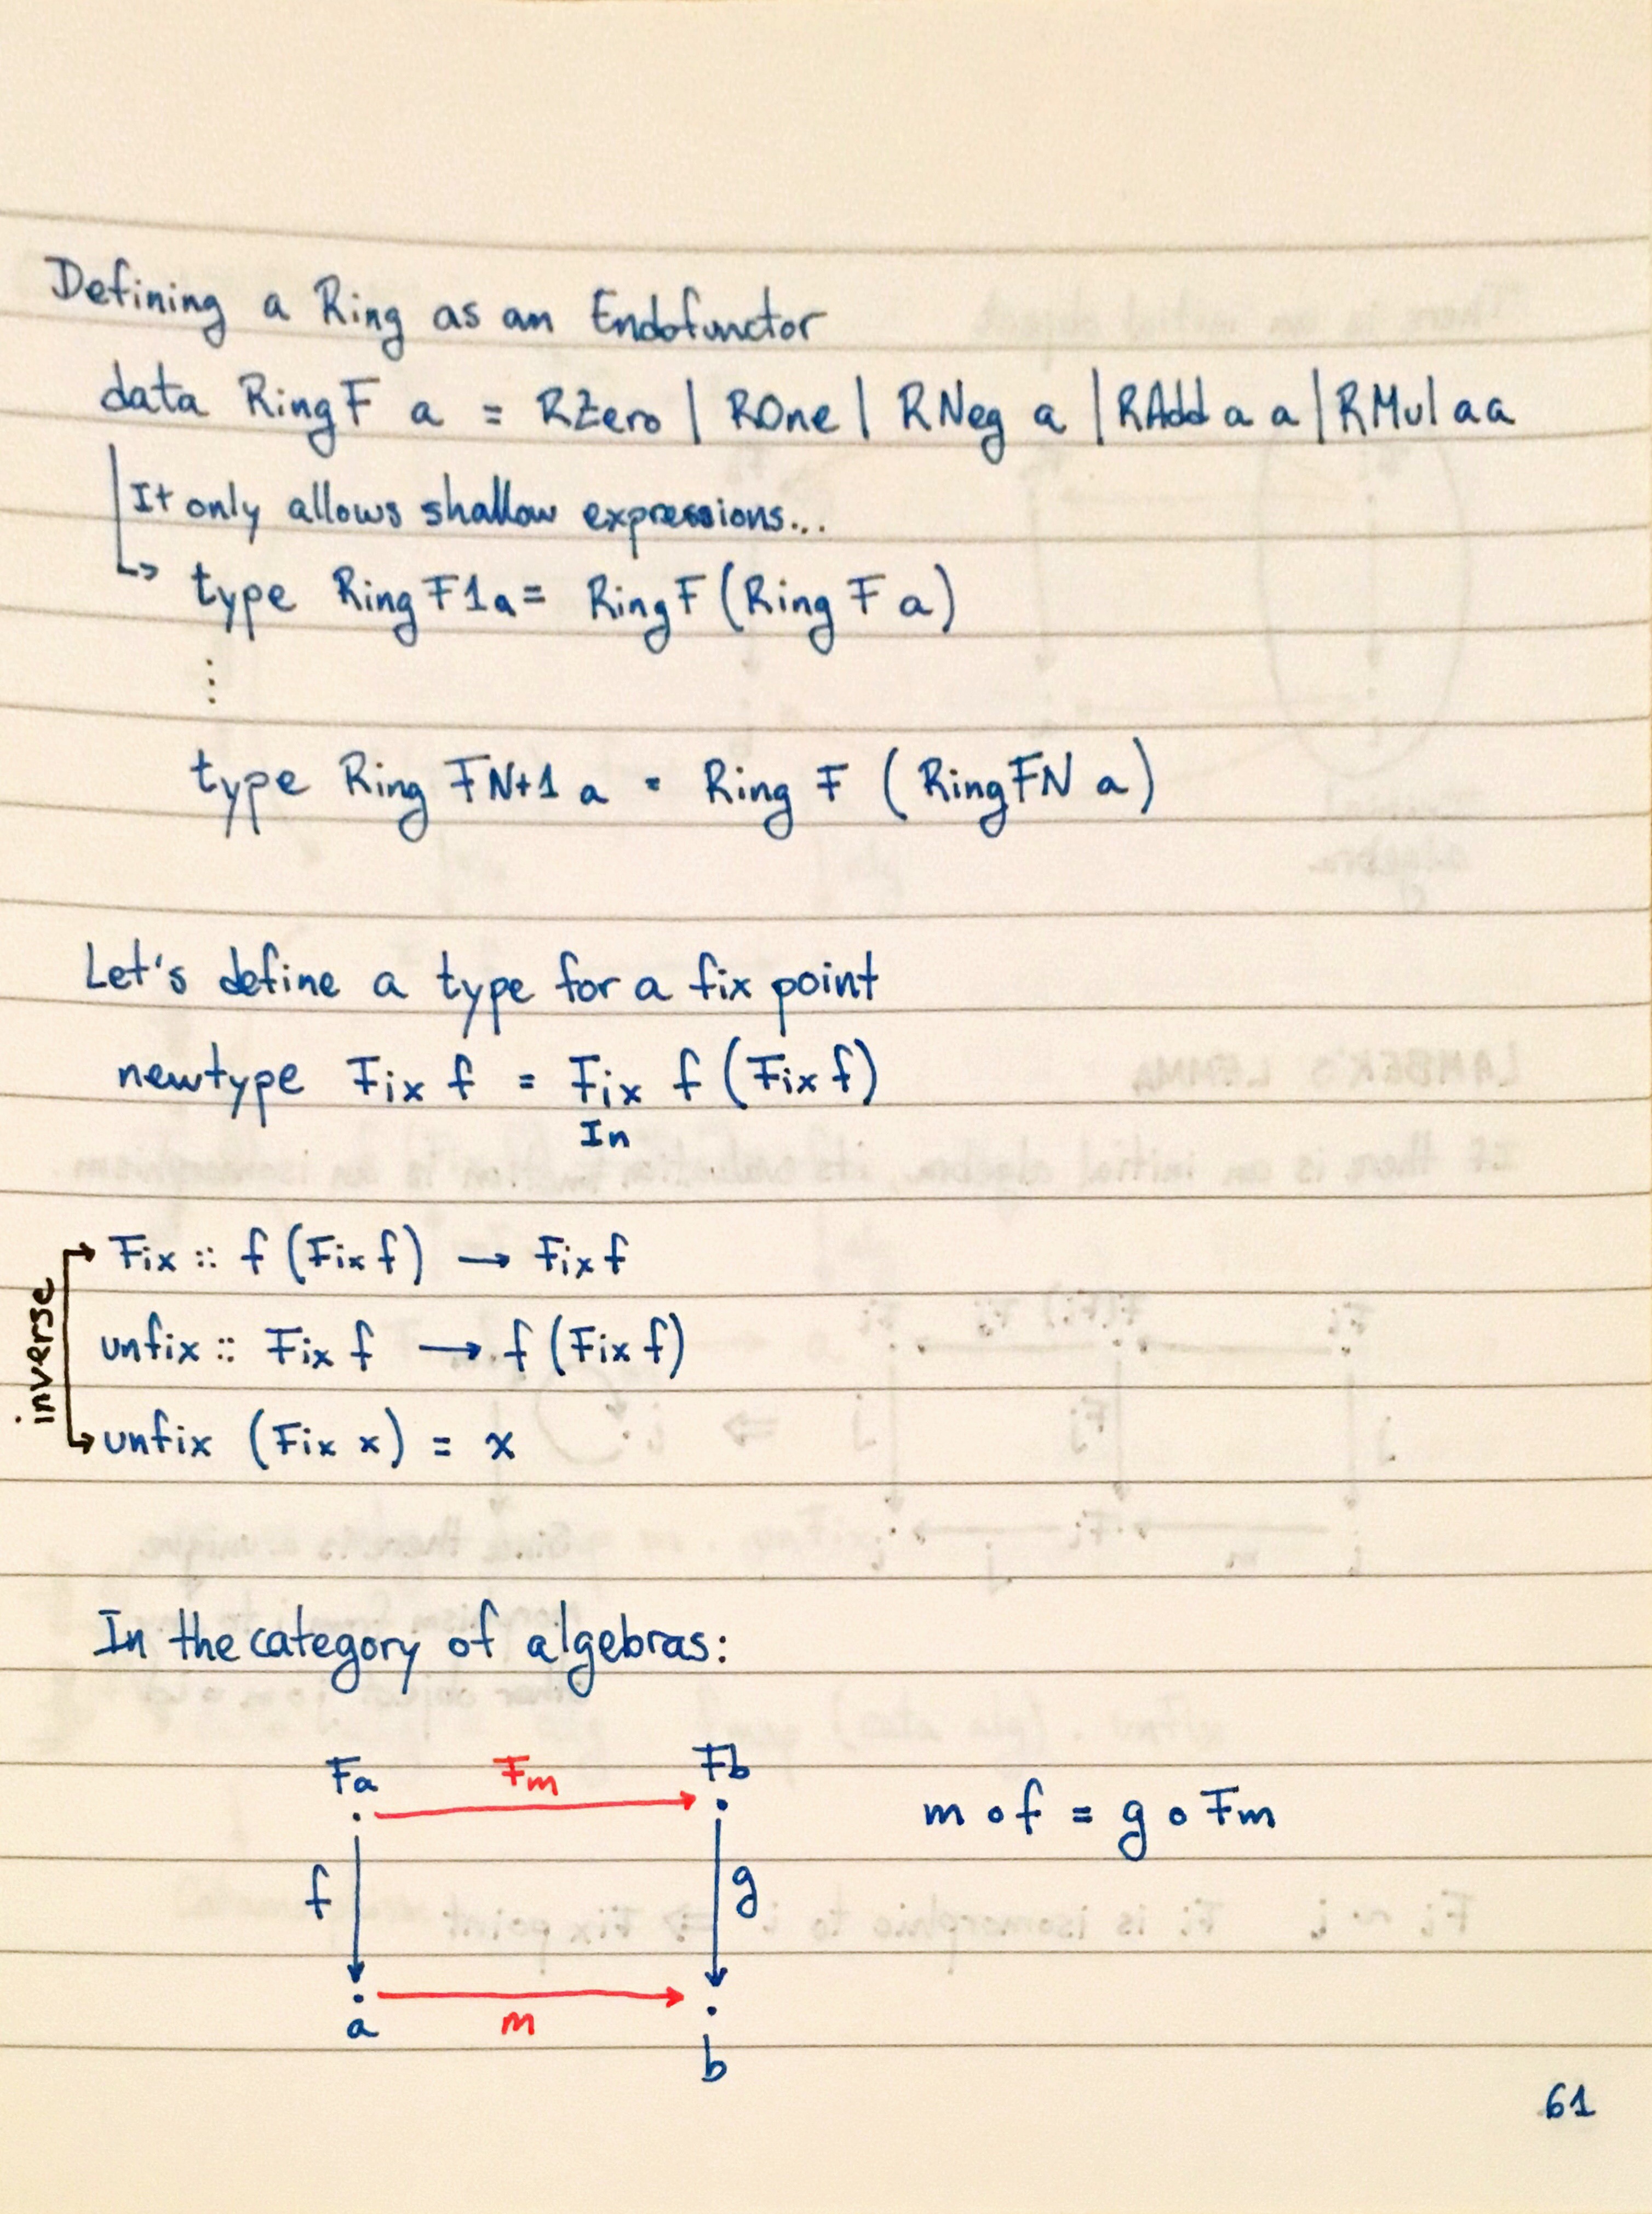 Defining a Ring as an Endofunctor
data RingF a = RZero | ROne | RNeg a | RAdd a a | RMul a a
It only allows shallow expressions...
type RingF1a = RingF (RingF a)
⋮
type RingFN+1 a = RingF (RingFN a)
Let's define a type for a fix point
newtype Fix f = Fix f (Fix f)
In
inverse
Fix :: f (Fix f) → Fix f
unfix :: Fix f → f (Fix f)
unfix (Fix x) = x
In the category of algebras:
Fa Fm Fb
m ∘ f = g ∘ Fm
f g
a m b
61